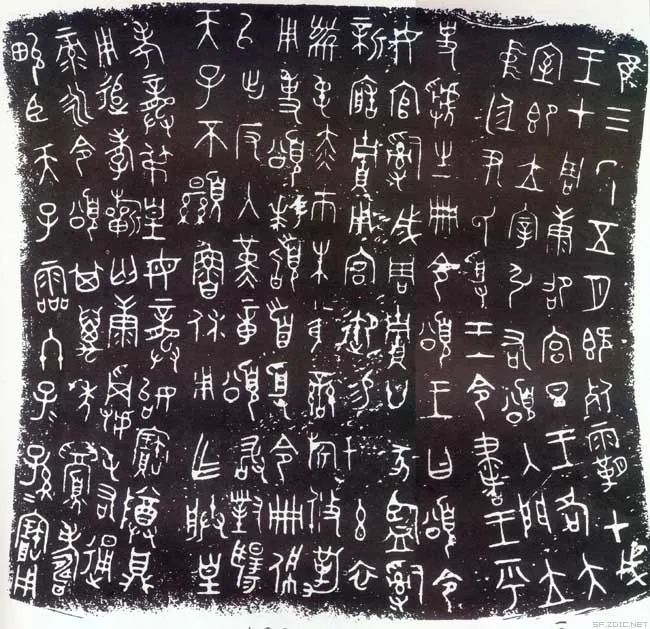 隹三年五月既死霸甲戌
王才周康卲宮旦王各大
室即立宰引右頌入門立
中廷尹氏受王令書王乎
史虢生冊令頌王曰頌令
女官𤔲成周貯廿家監𤔲
新造貯用宮御易女玄衣
黹屯赤巿朱黃鑾旂攸勒
用事頌拜稽首受令冊佩
以出反入堇章頌敢對揚
天子不顯魯休用乍朕皇
考龏叔皇母龏始寶尊鼎
用追孝祈匄康𠭯屯右通
彔永令頌其萬年眉壽
畯臣天子霝冬子孫=寶用
SF.ZDIC.NET